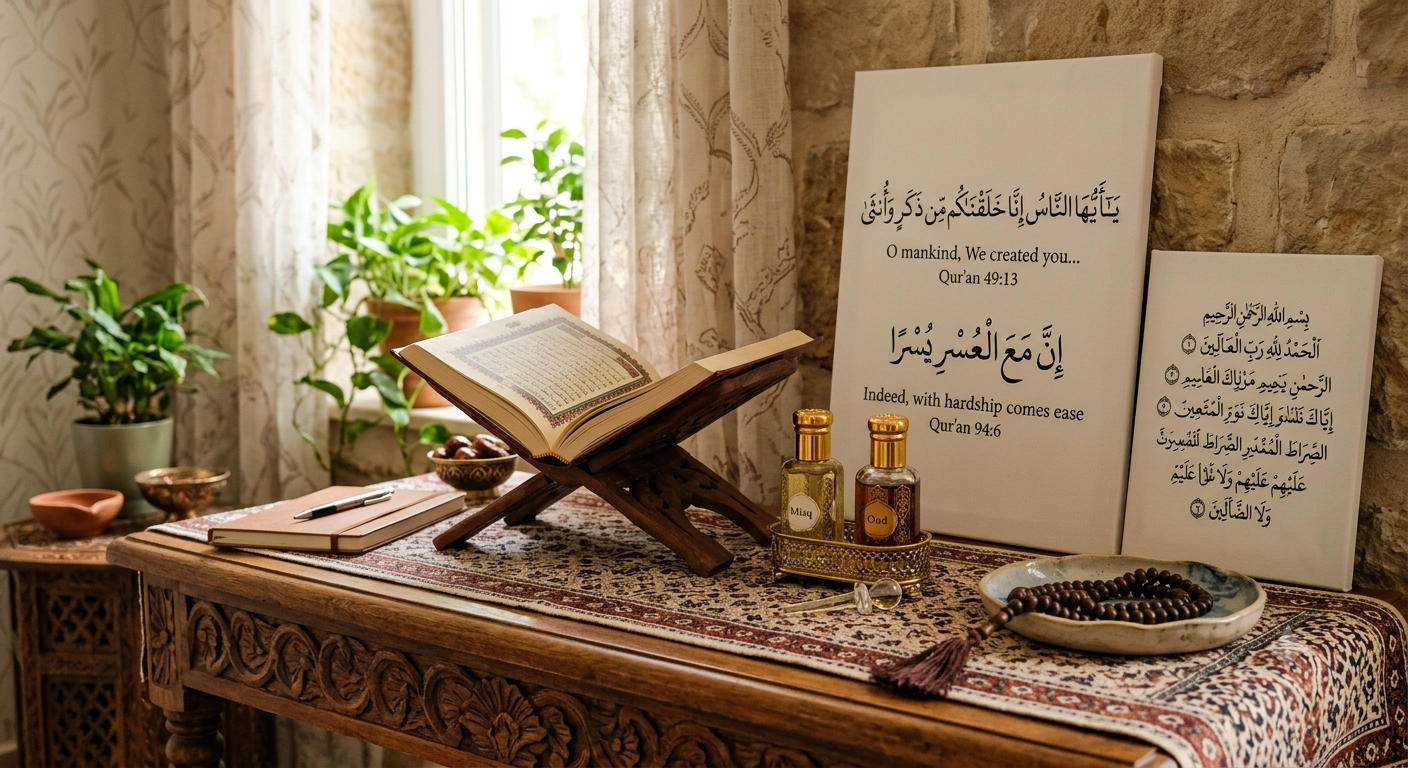 يَٰٓأَيُّهَا النَّاسُ إِنَّا خَلَقْنَاكُم مِّن ذَكَرٍ وَأُنثَىٰ
O mankind, We created you...
Qur'an 49:13
إِنَّ مَعَ الْعُسْرِ يُسْرًا
Indeed, with hardship comes ease
Qur'an 94:6
بِسْمِ اللهِ الرَّحْمٰنِ الرَّحِيمِ
اَلْحَمْدُ لِلّٰهِ رَبِّ
الرَّحْمٰنِ
إِيَّاكَ إِيَّاكَ
الصِّرَاطَ الصِّرَاطَ
عَلَيْهِمْ عَلَيْهِمْ وَلَا
وَلَا الضَّالِّينَ
Misq
Oud